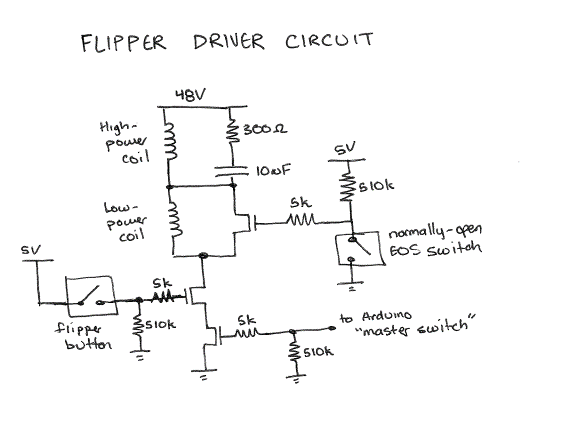 FLIPPER DRIVER CIRCUIT
48V
High-
power
coil
300Ω
10uF
5V
510k
Low-
power
coil
5k
normally-open
EOS switch
5V
5k
flipper
button
510k
5k
to Arduino
"master switch"
510k